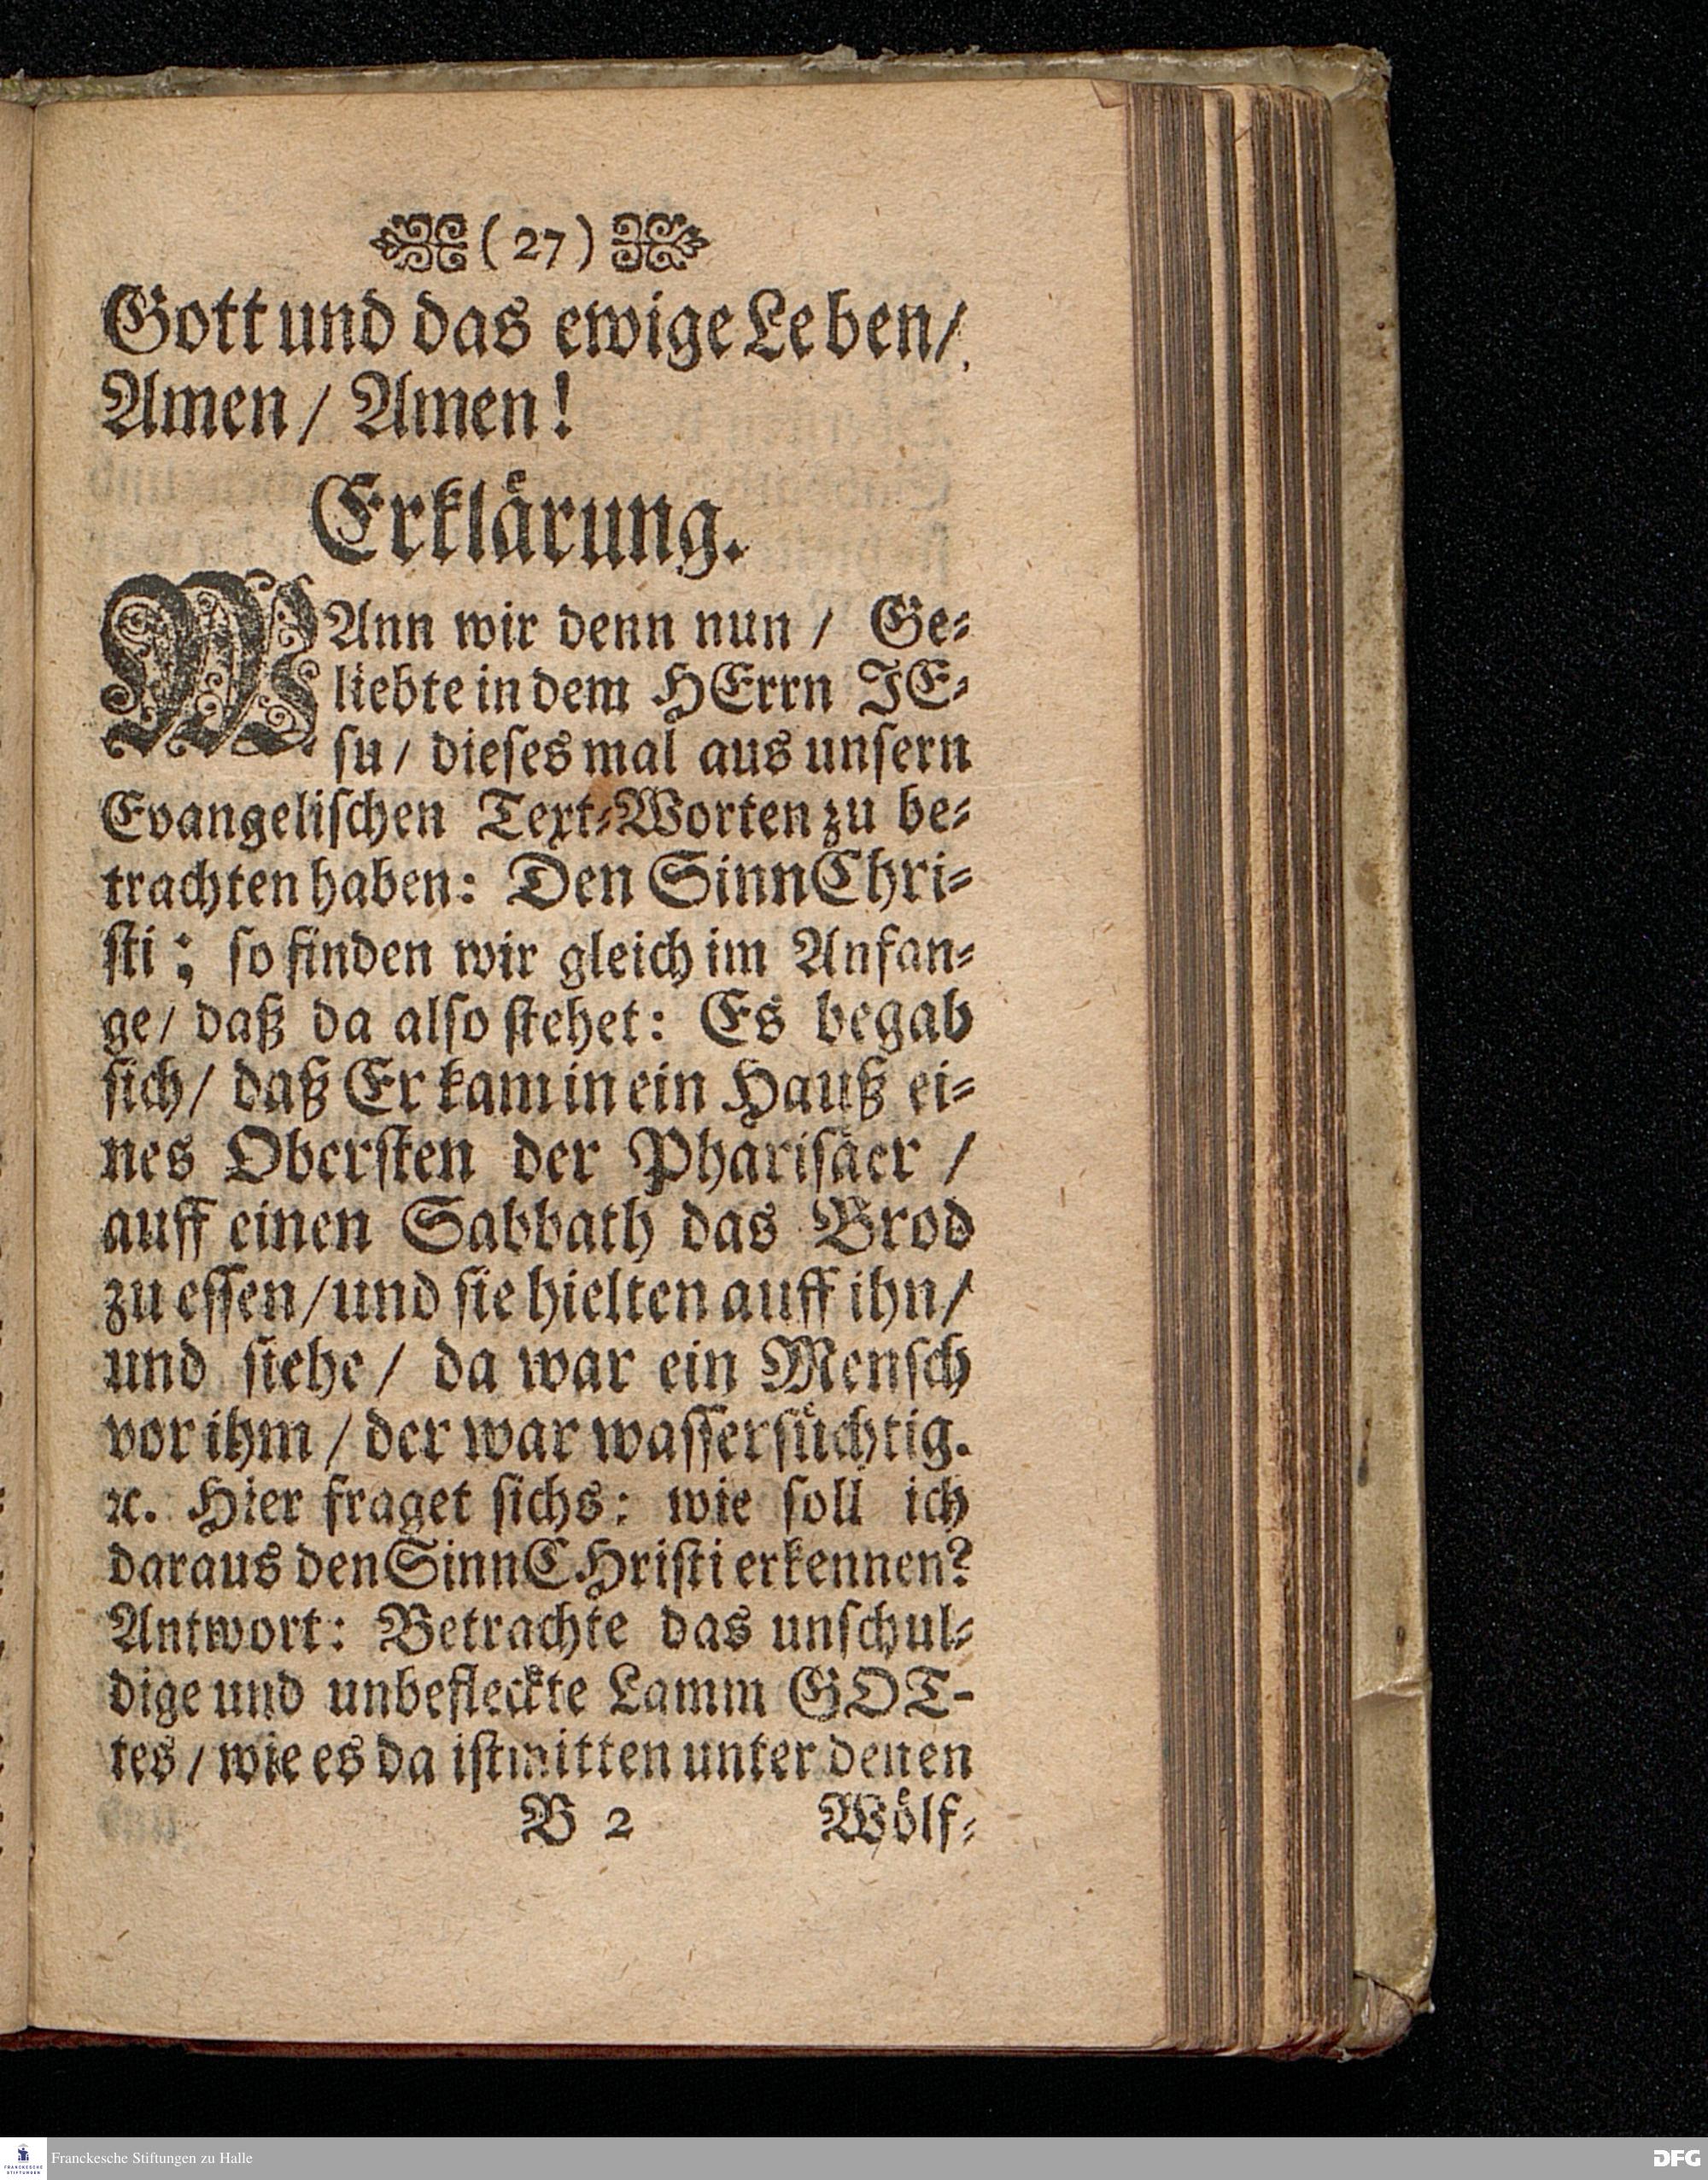 ( 27 )
Gott und das ewige Leben/
Amen/ Amen!
Erklärung.
WAnn wir denn nun / Ge-
liebte in dem HErrn JE-
su / dieses mal aus unsern
Evangelischen Text-Worten zu be-
trachten haben: Den Sinn Chri-
sti; so finden wir gleich im Anfan-
ge/ daß da also stehet: Es begab
sich/ daß Er kam in ein Hauß ei-
nes Obersten der Pharisäer /
auff einen Sabbath das Brod
zu essen/ und sie hielten auff ihn/
und siehe/ da war ein Mensch
vor ihm / der war wassersüchtig.
ꝛc. Hier fraget sichs: wie soll ich
daraus den Sinn CHristi erkennen?
Antwort: Betrachte das unschul-
dige und unbefleckte Lamm GOT-
tes / wie es da ist mitten unter denen
B 2 Wölf-
FRANCKESCHE STIFTUNGEN
Franckesche Stiftungen zu Halle
DFG